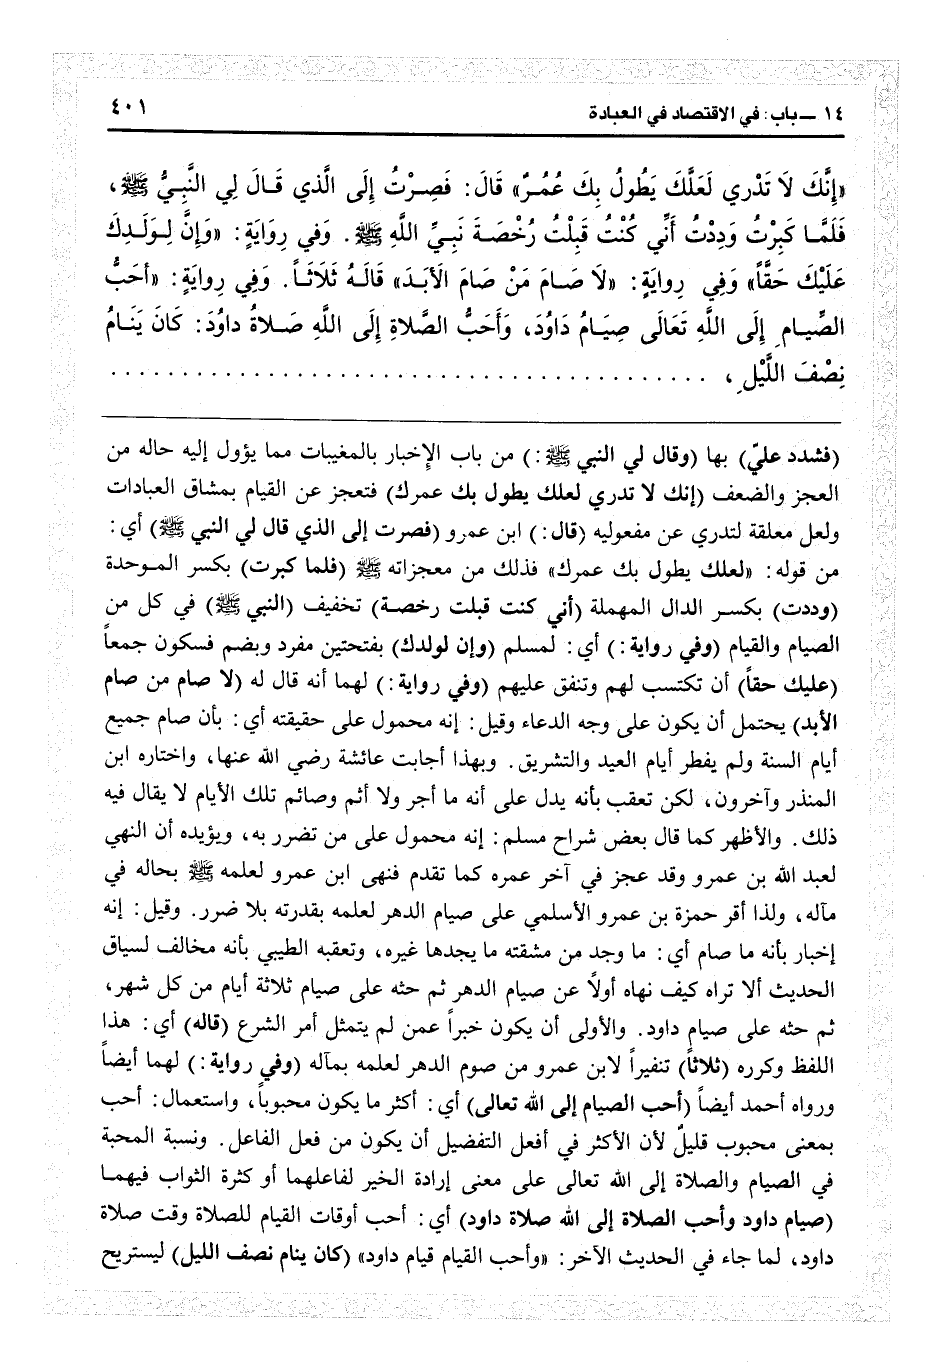 ١٤ ــ باب: في الاقتصاد في العبادة
٤٠١
«إِنَّكَ لاَ تَدْرِي لَعَلَّكَ يَطُولُ بِكَ عُمُرٌ» قَالَ: فَصِرْتُ إِلَى الَّذي قَالَ لِي النَّبِيُّ ﷺ،
فَلَمَّا كَبِرْتُ وَدِدْتُ أَنِّي كُنْتُ قَبِلْتُ رُخْصَةَ نَبِيِّ اللَّهِ ﷺ. وَفي رِوَايَةٍ: «وَإِنَّ لِوَلَدِكَ
عَلَيْكَ حَقَّاً» وَفِي رِوايَةٍ: «لاَ صَامَ مَنْ صَامَ الأَبَدَ» قَالَهُ ثَلَاثَاً. وَفِي رِوايَةٍ: «أَحَبُّ
الصِّيامِ إِلَى اللَّهِ تَعَالَى صِيَامُ دَاوُدَ، وَأَحَبُّ الصَّلاةِ إِلَى اللَّهِ صَلاةُ داوُدَ: كَانَ يَنَامُ
نِصْفَ اللَّيْلِ، ........................................
(فشدد عليّ) بها (وقال لي النبي ﷺ:) من باب الإِخبار بالمغيبات مما يؤول إليه حاله من
العجز والضعف (إنك لا تدري لعلك يطول بك عمرك) فتعجز عن القيام بمشاق العبادات
ولعل معلقة لتدري عن مفعوليه (قال:) ابن عمرو (فصرت إلى الذي قال لي النبي ﷺ) أي:
من قوله: «لعلك يطول بك عمرك» فذلك من معجزاته ﷺ (فلما كبرت) بكسر الموحدة
(وددت) بكسر الدال المهملة (أني كنت قبلت رخصة) تخفيف (النبي ﷺ) في كل من
الصيام والقيام (وفي رواية:) أي: لمسلم (وإن لولدك) بفتحتين مفرد وبضم فسكون جمعاً
(عليك حقاً) أن تكتسب لهم وتنفق عليهم (وفي رواية:) لهما أنه قال له (لا صام من صام
الأبد) يحتمل أن يكون على وجه الدعاء وقيل: إنه محمول على حقيقته أي: بأن صام جميع
أيام السنة ولم يفطر أيام العيد والتشريق. وبهذا أجابت عائشة رضي الله عنها، واختاره ابن
المنذر وآخرون، لكن تعقب بأنه يدل على أنه ما أجر ولا أثم وصائم تلك الأيام لا يقال فيه
ذلك. والأظهر كما قال بعض شراح مسلم: إنه محمول على من تضرر به، ويؤيده أن النهي
لعبد الله بن عمرو وقد عجز في آخر عمره كما تقدم فنهى ابن عمرو لعلمه ﷺ بحاله في
مآله، ولذا أقر حمزة بن عمرو الأسلمي على صيام الدهر لعلمه بقدرته بلا ضرر. وقيل: إنه
إخبار بأنه ما صام أي: ما وجد من مشقته ما يجدها غيره، وتعقبه الطيبي بأنه مخالف لسياق
الحديث ألا تراه كيف نهاه أولاً عن صيام الدهر ثم حثه على صيام ثلاثة أيام من كل شهر،
ثم حثه على صيام داود. والأولى أن يكون خبراً عمن لم يتمثل أمر الشرع (قاله) أي: هذا
اللفظ وكرره (ثلاثاً) تنفيراً لابن عمرو من صوم الدهر لعلمه بمآله (وفي رواية:) لهما أيضاً
ورواه أحمد أيضاً (أحب الصيام إلى الله تعالى) أي: أكثر ما يكون محبوباً، واستعمال: أحب
بمعنى محبوب قليلٌ لأن الأكثر في أفعل التفضيل أن يكون من فعل الفاعل. ونسبة المحبة
في الصيام والصلاة إلى الله تعالى على معنى إرادة الخير لفاعلهما أو كثرة الثواب فيهما
(صيام داود وأحب الصلاة إلى الله صلاة داود) أي: أحب أوقات القيام للصلاة وقت صلاة
داود، لما جاء في الحديث الآخر: «وأحب القيام قيام داود» (كان ينام نصف الليل) ليستريح